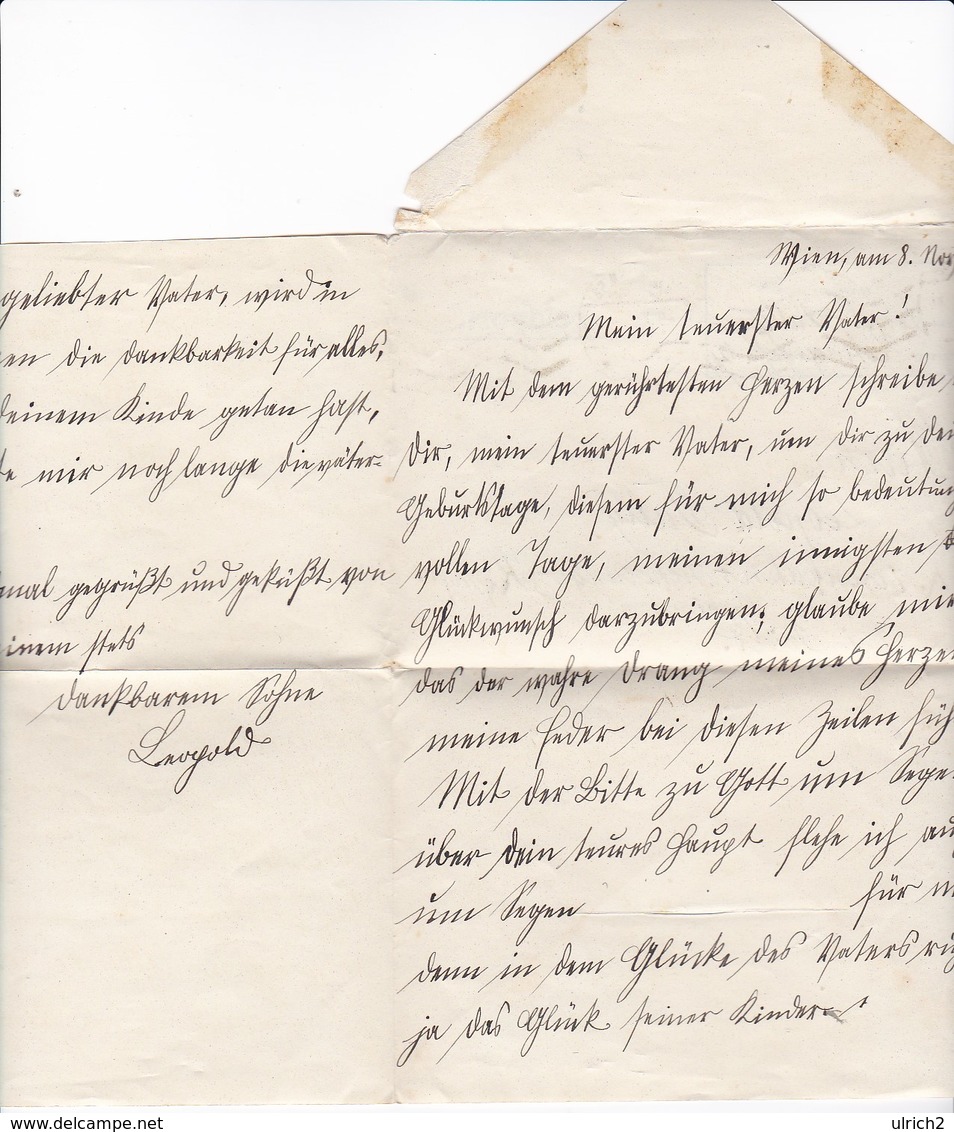 Wien, am 8. Nov
Mein teuerster Vater!
Mit dem gerührtesten Herzen schreibe
Dir, mein teuerster Vater, um Dir zu Dei
Geburtstage, diesem für mich so bedeutung
vollen Tage, meinen innigsten
Glückwunsch darzubringen; glaube mir
das der wahre Drang meines Herzen
meine Feder bei diesen Zeilen füh
Mit der Bitte zu Gott um Sege
über Dein teures Haupt flehe ich au
um Segen für m
denn in dem Glücke des Vaters ru
ja das Glück seiner Kinder.
geliebter Vater, wird in
en die Dankbarkeit für alles,
Deinem Kinde getan hast,
te mir noch lange die väter-
mal gegrüßt und geküßt von
einem stets
dankbarem Sohne
Leopold
www.delcampe.net
ulrich2